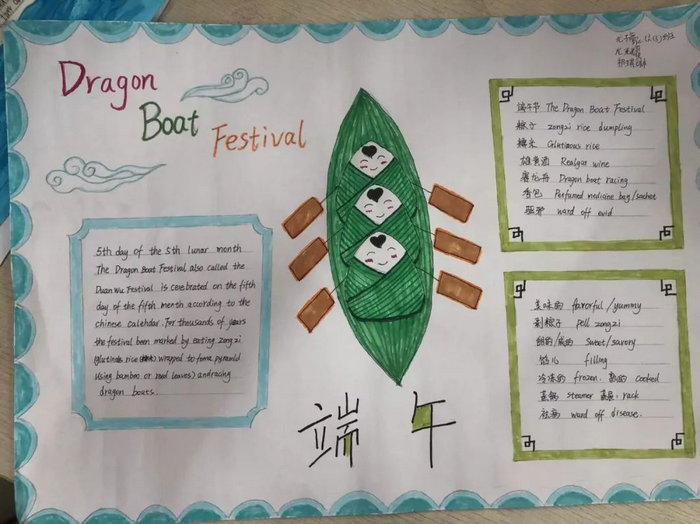 Dragon
Boat
Festival
5th day of the 5th lunar month
The Dragon Boat Festival also called the
Duan Wu Festival is celebrated on the fifth
day of the fifth month according to the
chinese calendar. For thousands of years
the festival been marked by eating zong zi
(glutinous rice wrapped to form a pyramid
using bamboo or reed leaves) and racing
dragon boats.
端午
端午节 The Dragon Boat Festival
粽子 zongzi rice dumpling
糯米 Glutinous rice
雄黄酒 Realgar wine
赛龙舟 Dragon boat racing
香包 Perfumed medicine bag/sachet
驱邪 ward off evid
美味的 flavorful/yummy
剥粽子 pell zongzi
甜的/咸的 sweet/savory
馅儿 filling
冷冻的 frozen. 熟的 cooked
蒸锅 steamer 蒸屉: rack
祛病 ward off disease.